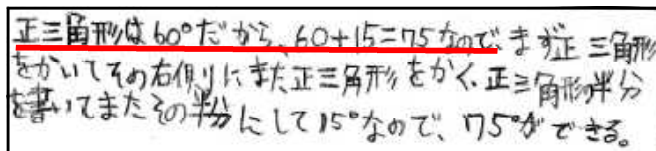 正三角形は60°だから、60+15=75なので、まず正三角形
をかいてその右側りにまた正三角形をかく。正三角形の半分
を書いてまたその半分にして15°なので、75°ができる。